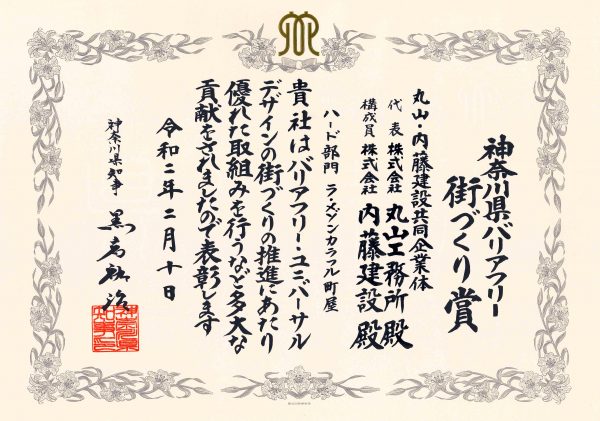 神奈川県バリアフリー
街づくり賞
丸山・内藤建設共同企業体
代表 株式会社 丸山工務所 殿
構成員 株式会社 内藤建設 殿
ハード部門 ラ・メゾンカラフル町屋
貴社はバリアフリー・ユニバーサル
デザインの街づくりの推進にあたり
優れた取組みを行うなど多大な
貢献をされましたので表彰します
令和二年二月十日
神奈川県知事 黒岩祐治